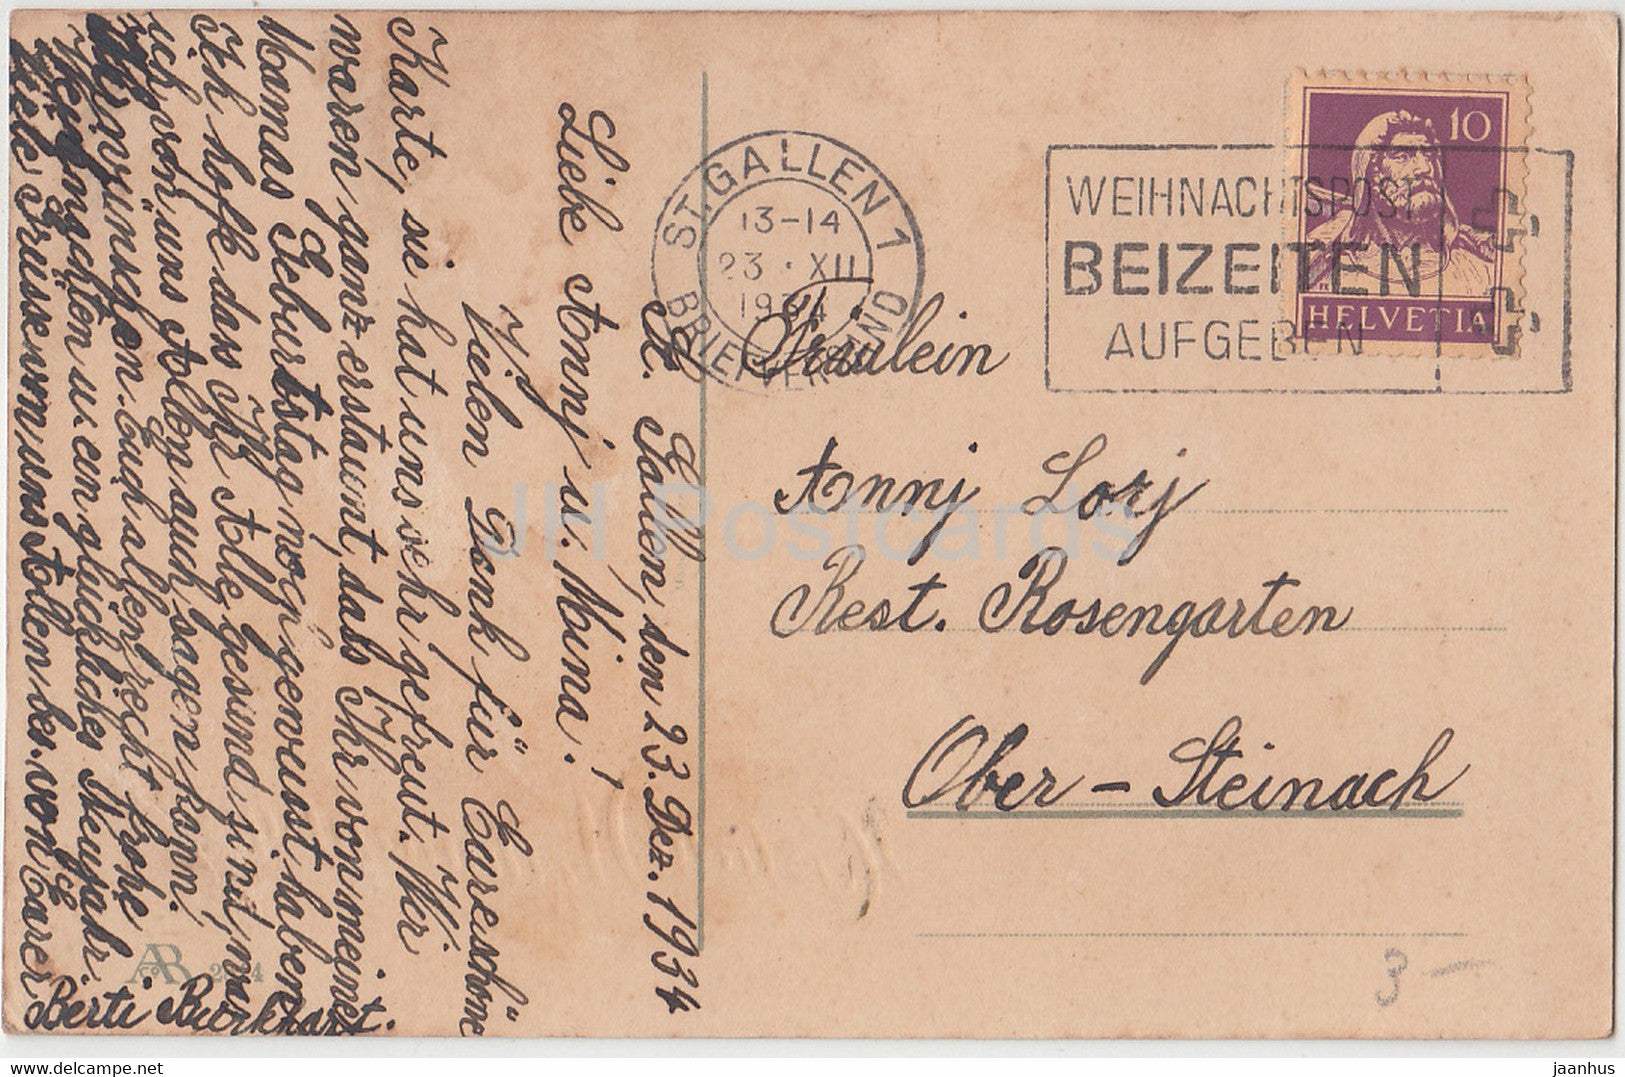 St. Gallen, den 23. Dez. 1934
Liebe Annj u. Mina!
Vielen Dank für Eure schöne
Karte, sie hat uns sehr gefreut. Wir
waren ganz erstaunt, dass Ihr von meiner
Mamas Geburtstag noch gewusst haben.
Ich hoffe dass Ihr Alle gesund sind, was
ich von uns Allen auch sagen kann.
Wir wünschen Euch allen recht frohe
Weihnachten u. ein glückliches Neujahr.
Viele Grüsse von uns Allen bes. von Eurer
Berti Burkhart.
ST. GALLEN 1
13-14
23 . XII
1934
BRIEFVERSAND
WEIHNACHTSPOST
BEIZEITEN
AUFGEBEN
10
HELVETIA
Fräulein
Annj Lorj
Rest. Rosengarten
Ober-Steinach
3 —
JH Postcards
www.delcampe.net
jaanhus